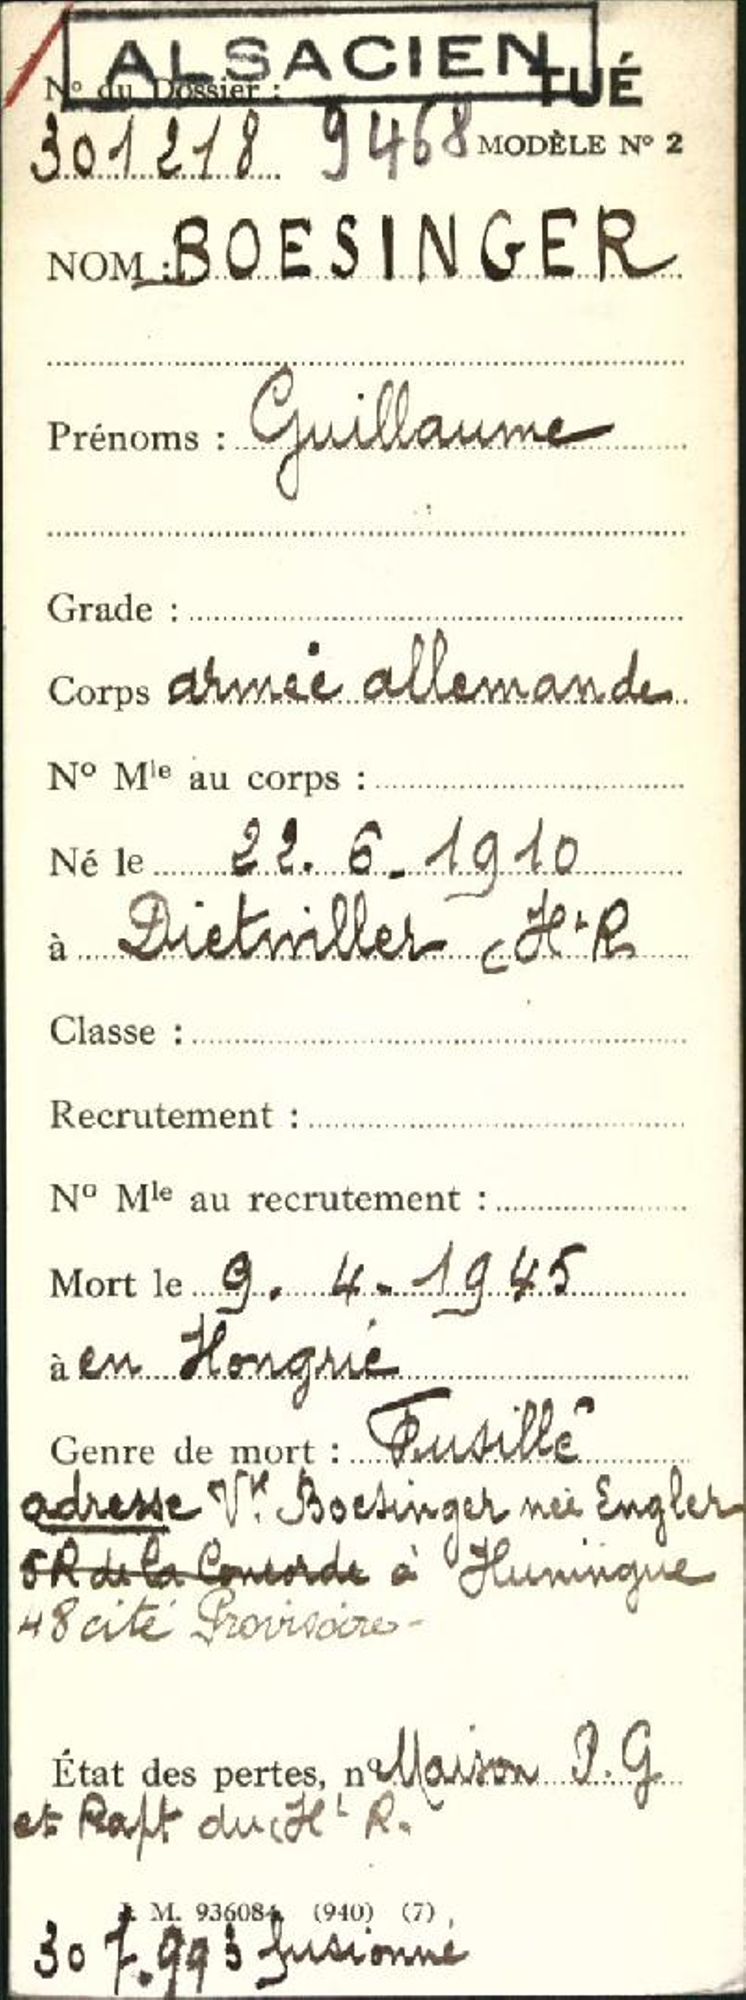 ALSACIEN
TUÉ
N° du Dossier :
301218 9468 MODÈLE N° 2
NOM : BOESINGER
Prénoms : Guillaume
Grade :
Corps armée allemande
N° Mle au corps :
Né le 22. 6. 1910
à Dietwiller Ht R
Classe :
Recrutement :
N° Mle au recrutement :
Mort le 9. 4. 1945
à en Hongrie
Genre de mort : Fusillé
adresse Ve Boesinger née Engler
5 R de la Concorde à Huningue
48 cité Provisoire -
État des pertes, n° Maison P.G
et Rapt du Ht R.
M. 936084. (940) (7)
307.993 fusionné